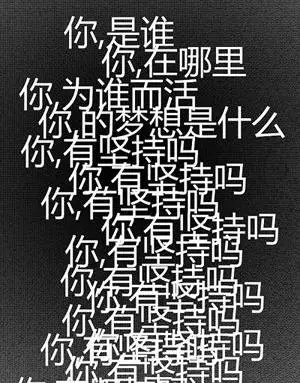 你,是谁
你,在哪里
你,为谁而活
你,的梦想是什么
你,有坚持吗
你,有坚持吗
你,有坚持吗
你,有坚持吗
你,有坚持吗
你,有坚持吗
你,有坚持吗
你,有坚持吗
你,有坚持吗
你,有坚持吗